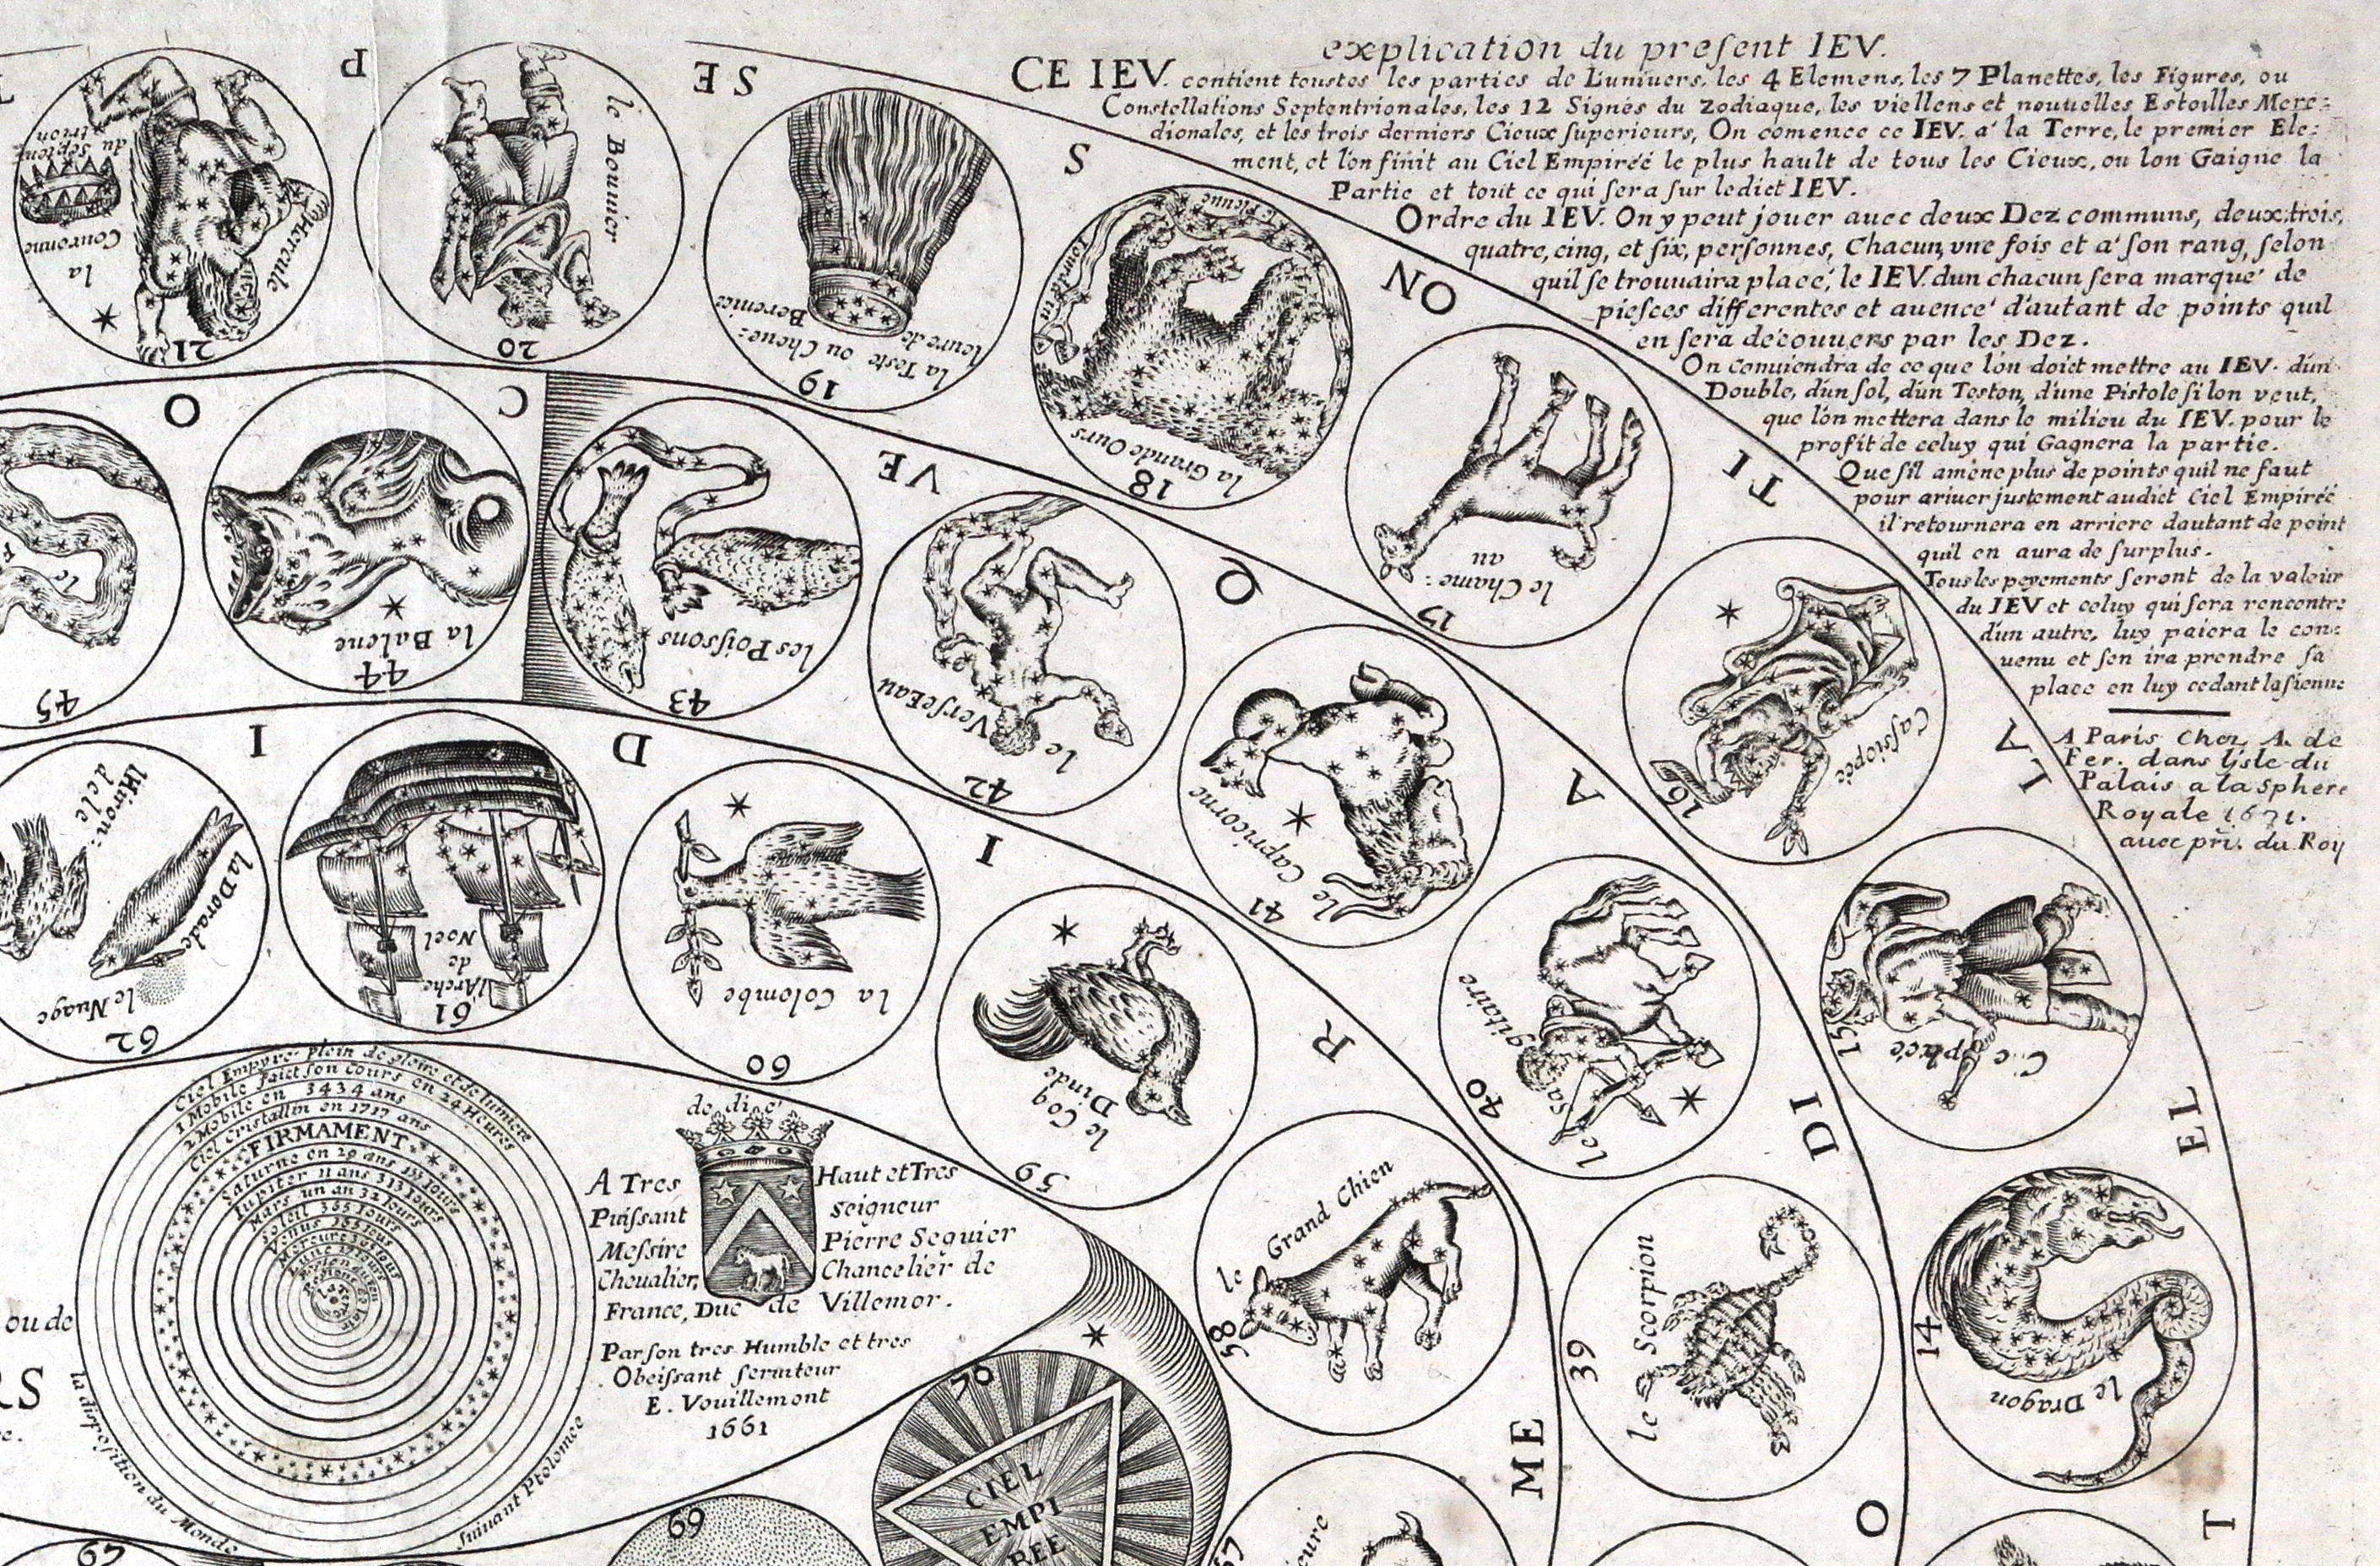 explication du preſent IEV.
CE IEV. contient toustes les parties de Luniuers, les 4 Elemens, les 7 Planettes, les Figures, ou
Constellations Septentrionales, les 12 Signes du Zodiaque, les viellens et nouuelles Estoilles Mere:
dionales, et les trois derniers Cieux ſuperieurs, On comence ce IEV. a' la Terre, le premier Ele:
ment, et lon finit au Ciel Empiréé le plus hault de tous les Cieux, ou lon Gaigne la
Partie et tout ce qui ſera ſur ledict IEV.
Ordre du IEV. On y peut jouer auec deux Dez communs, deux, trois,
quatre, cinq, et ſix, perſonnes, Chacun, vne fois et a' ſon rang, ſelon
quil ſe trouuaira placé, le IEV. dun chacun ſera marqué de
pieſces differentes et auencé d'autant de points quil
en ſera découuers par les Dez.
On conuiendra de ce que lon doict mettre au IEV. dun
Double, dun ſol, dun Teston, dune Pistole ſi lon veut,
que lon mettera dans le milieu du IEV. pour le
profit de celuy qui Gagnera la partie.
Que ſil amene plus de points quil ne faut
pour ariuer justement audict Ciel Empiréé
il retournera en arriere dautant de point
quil en aura de ſurplus.
Tous les peyements ſeront de la valeur
du IEV et celuy qui ſera rencontre
dun autre, luy paiera le con:
uenu et ſen ira prendre ſa
place en luy cedant la ſienne
A Paris Chez A. de
Fer. dans liſle du
Palais a la Sphere
Royale 1671.
auec pri. du Roy
P
SE
S
ON
TI
L
EL
T
lHercule
la Couronne
du Septen
trion
21
le Bouuier
20
la Teste ou Cheue:
leure de Berenice
19
la Grande Ours
18
le Chame:
au
17
Caſsiopée
16
Cephée
15
le Dragon
14
O
C
VE
Q
A
DI
O
45
la Balene
44
les Poiſsons
43
le VerſeEau
42
le Capricorne
41
le Sagitaire
40
le Scorpion
39
I
D
I
R
ME
lHiron:
delé
la Dorade
le Nuage
62
lArche
de
Noel
61
la Colombe
60
le Coq
Dinde
59
le Grand Chien
58
Ciel Empyre plein de gloire et de lumiere
1 Mobile faict ſon Cours en 24 Heures
2 Mobile en 3434 ans
Ciel Cristallin en 1717 ans
FIRMAMENT
Saturne en 29 ans 155 Iours
Iupiter 11 ans 313 Iours
Mars un an 321 Iours
Soleil 365 Iours
la diſpoſition du Monde
ſuiuant Ptolomée
ou de
RS
de die'
A Tres Haut et Tres
Puiſsant seigneur
Meſsire Pierre Seguier
Cheualier, Chancelier de
France, Duc de Villemor.
Par ſon tres Humble et tres
Obeiſsant ſeruiteur
E. Vouillemont
1661
70
CIEL
EMPI
REE
69
67